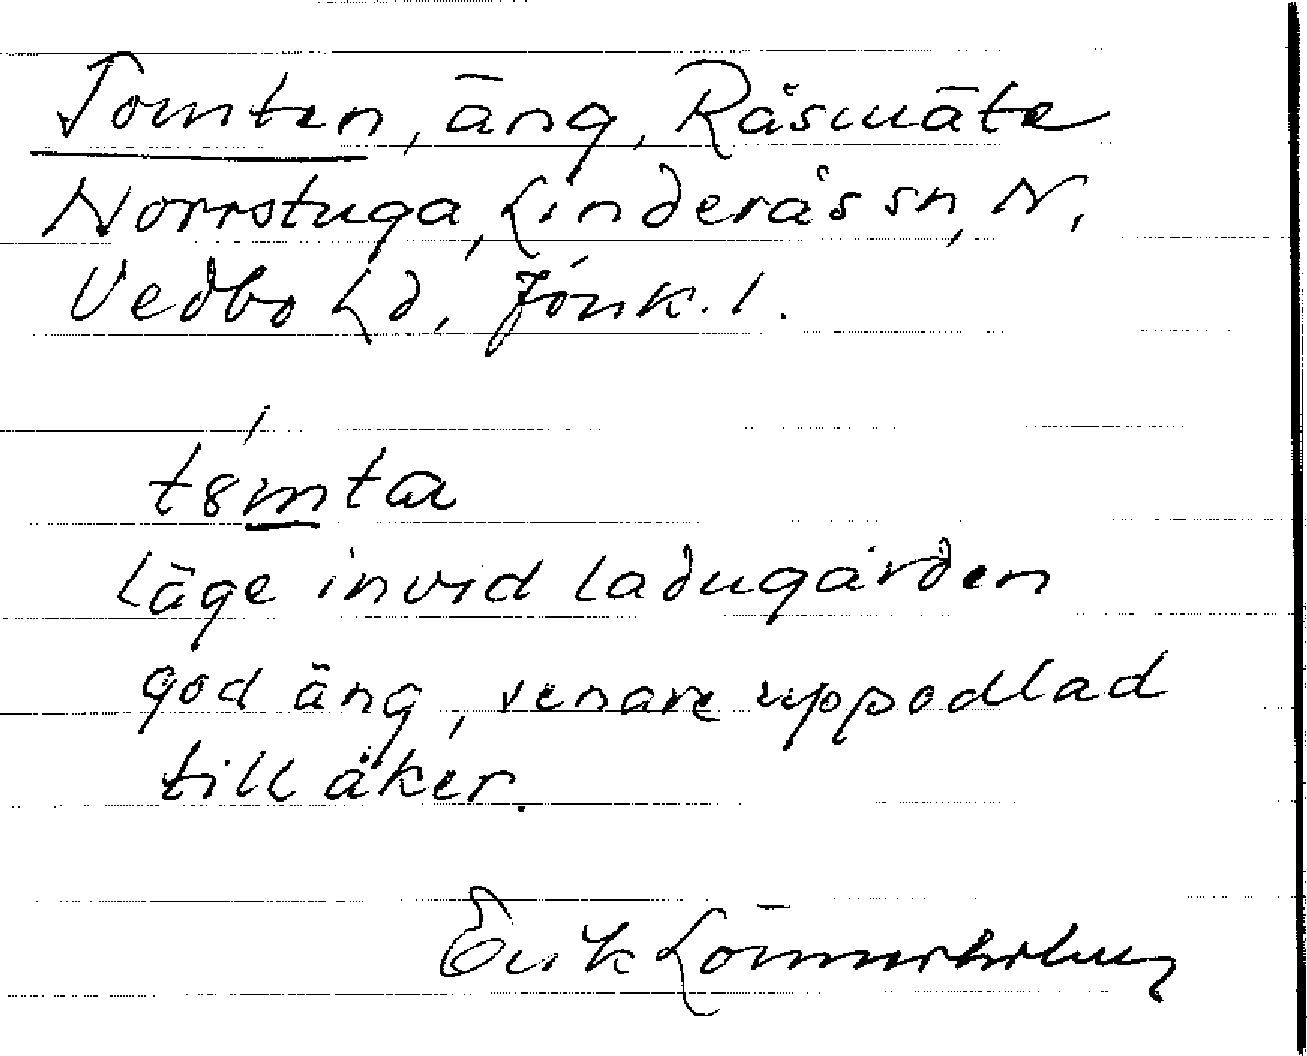 Tomten, äng, Råsmäte
Norrstuga, Linderås sn, N.
Vedbo hd, Jönk. l.
t8mta
läge invid ladugården
god äng, senare uppodlad
till åker.
Erik Lönnerholm